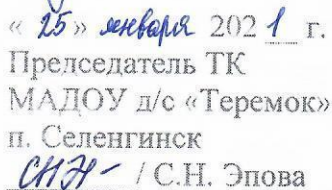 « 25 » января 2021 г.
Председатель ТК
МАДОУ д/с «Теремок»
п. Селенгинск
/ С.Н. Эпова